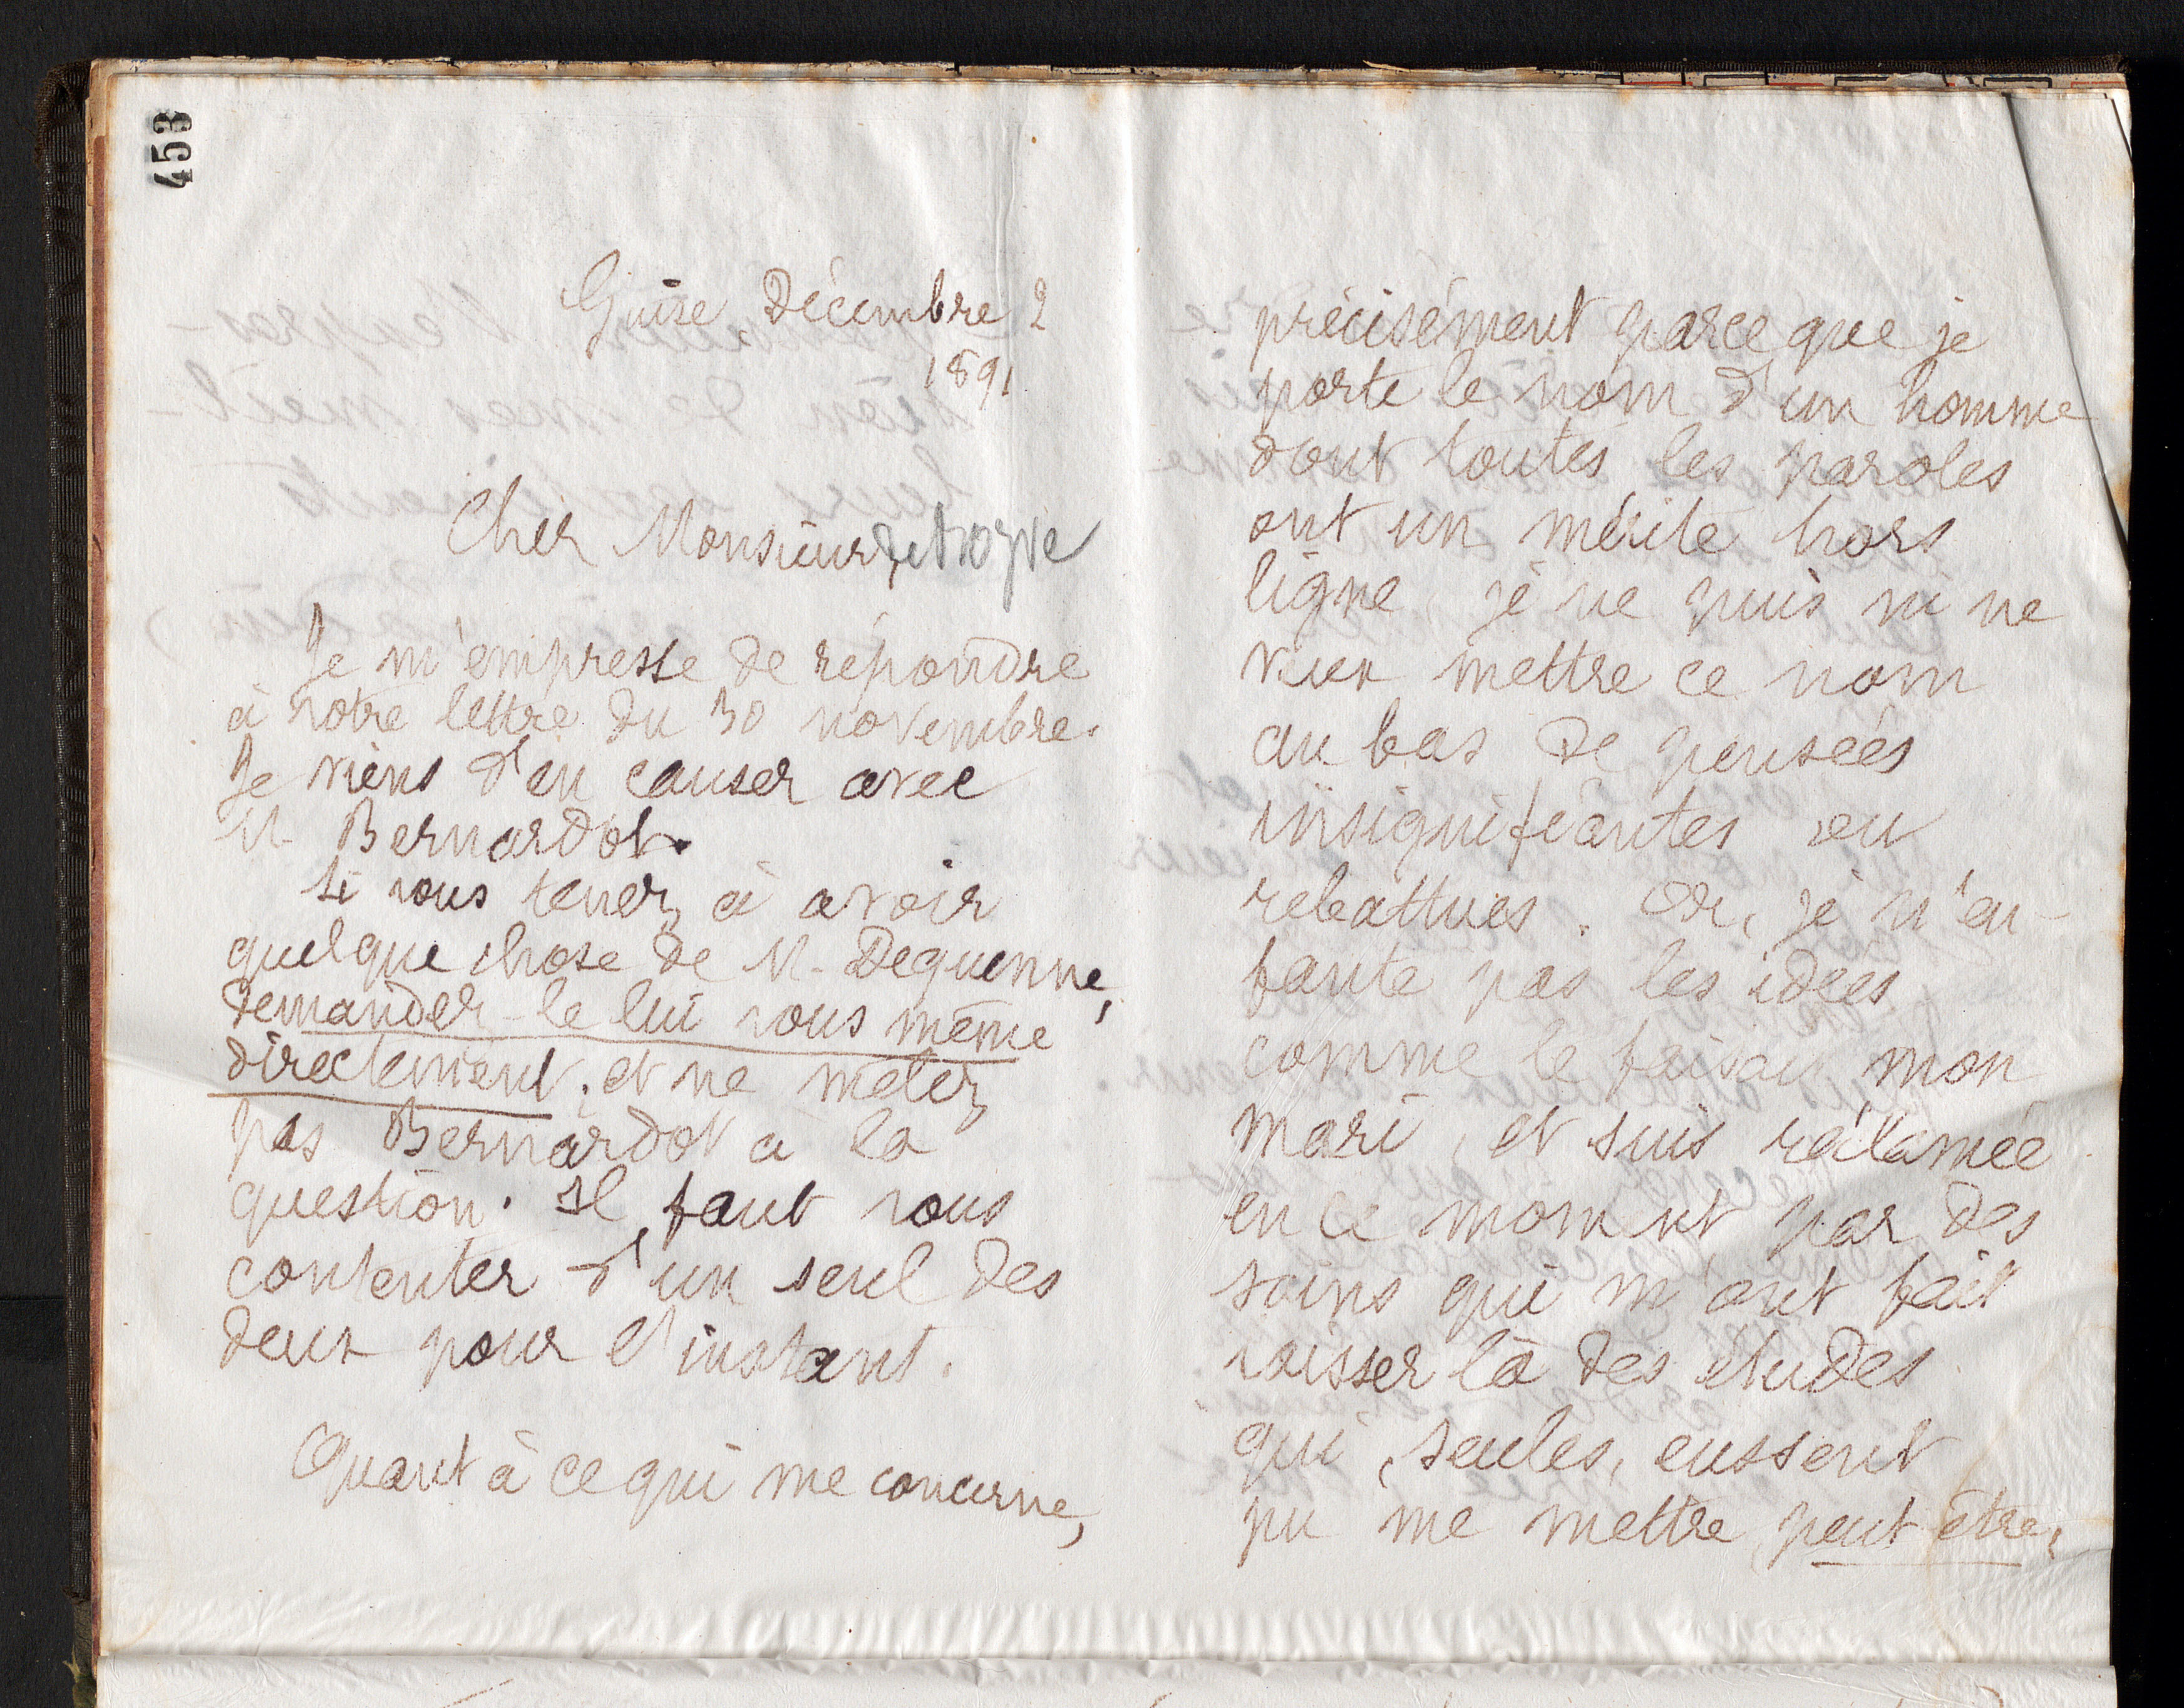 453
Guise, Décembre 2
1891
Cher Monsieur, deBoyve
Je m'empresse de répondre
à votre lettre du 30 novembre.
Je viens d'en causer avec
M. Bernardot.
Si vous tenez à avoir
quelque chose de M. Dequenne,
demandez-le lui vous même
directement. et ne mêlez
pas Bernardot à la
question. Il faut vous
contenter d'un seul des
deux pour l'instant.
Quant à ce qui me concerne,
précisément parce que je
porte le nom d'un homme
dont toutes les paroles
ont un mérite hors
ligne, je ne puis ni ne
veux mettre ce nom
au bas de pensées
insignifiantes ou
rebattues. Or, je n'en-
fante pas les idées
comme le faisait mon
mari, et suis réclamée
en ce moment par des
soins qui m'ont fait
laisser là des études
qui, seules, eussent
pu me mettre, peut être,